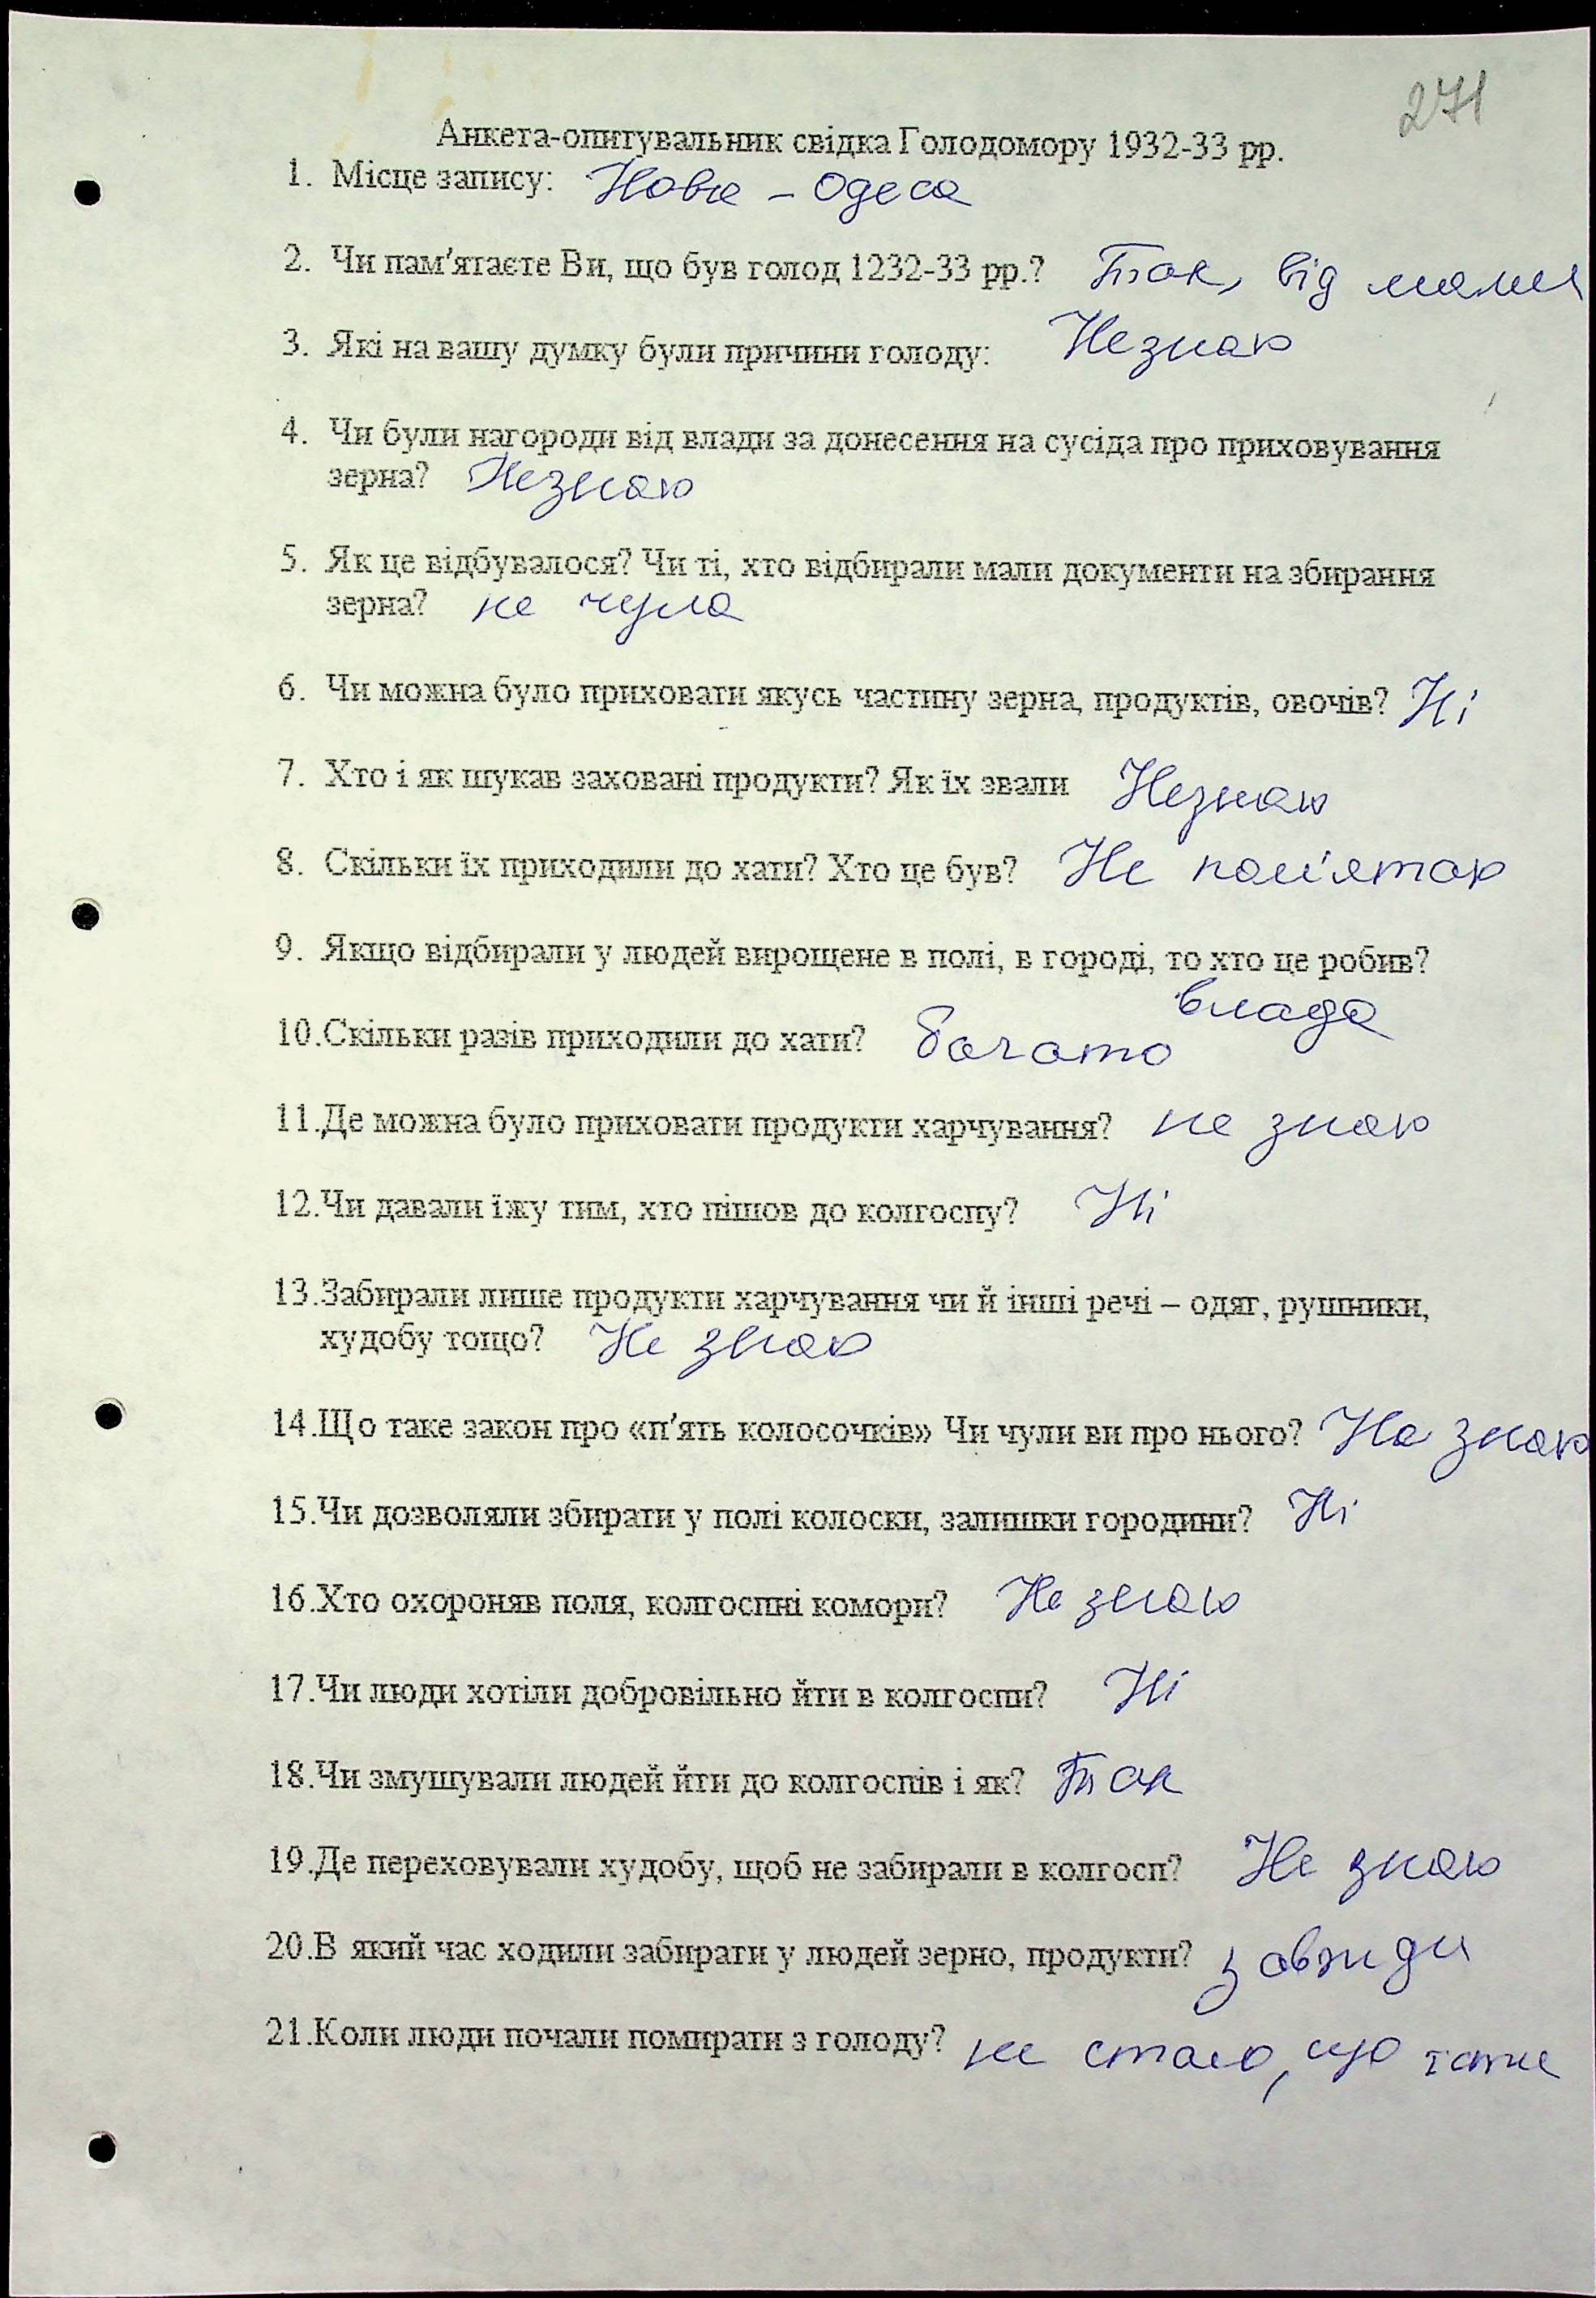 271
Анкета-опитувальник свідка Голодомору 1932-33 рр.
1. Місце запису: Нова - Одеса
2. Чи пам'ятаєте Ви, що був голод 1232-33 рр.? Так, від мами
3. Які на вашу думку були причини голоду: Незнаю
4. Чи були нагороди від влади за донесення на сусіда про приховування
зерна? Незнаю
5. Як це відбувалося? Чи ті, хто відбирали мали документи на збирання
зерна? не чула
6. Чи можна було приховати якусь частину зерна, продуктів, овочів? Ні
7. Хто і як шукав заховані продукти? Як їх звали Незнаю
8. Скільки їх приходили до хати? Хто це був? Не пам'ятаю
9. Якщо відбирали у людей вирощене в полі, в городі, то хто це робив?
влада
10.Скільки разів приходили до хати? багато
11.Де можна було приховати продукти харчування? не знаю
12.Чи давали їжу тим, хто пішов до колгоспу? Ні
13.Забирали лише продукти харчування чи й інші речі – одяг, рушники,
худобу тощо? Не знаю
14.Що таке закон про «п'ять колосочків» Чи чули ви про нього? Не знаю
15.Чи дозволяли збирати у полі колоски, залишки городини? Ні
16.Хто охороняв поля, колгоспні комори? Не знаю
17.Чи люди хотіли добровільно йти в колгоспи? Ні
18.Чи змушували людей йти до колгоспів і як? Так
19.Де переховували худобу, щоб не забирали в колгосп? Не знаю
20.В який час ходили забирати у людей зерно, продукти? завжди
21.Коли люди почали помирати з голоду? не стало, що